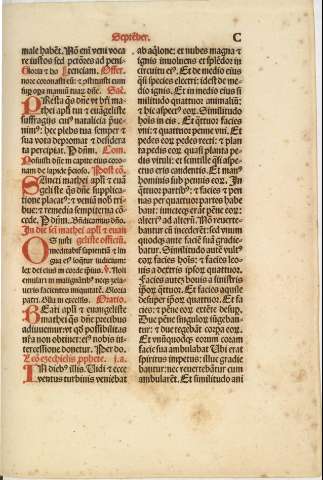 Septēber.
C
male habēt. Nō em̄ veni voca
re iustos sed pctōres ad peni-
tentiam.
Offer.
nore coronasti eū: ⁊ cōstituisti eum
sup opa manuū tuaꝝ dn̄e.
Presta q̄s dn̄e vt bt̄i ma-
thei apl̄i tui ⁊ euāgeliste
suffragijs cuiꝰ natalicia p̄ue-
nimꝰ: hec plebs tua semper ⁊
sua vota depromat ⁊ desidera
ta percipiat. P dn̄m. Com.
Posuisti dn̄e in capite eius coro-
nam de lapide p̄cioso. Post cō.
Sancti mathei apl̄i ⁊ euā
geliste q̄s dn̄e supplica-
tione placatꝰ: ⁊ veniā nob tri-
bue: ⁊ remedia sempiterna cō-
cede. P dn̄m. Bn̄dicamus dn̄o.
In die sci mathei apl̄i ⁊ euan
geliste officiū.
Os iusti
meditabit̄ sapientiā ⁊ lin
gua eiꝰ loq̄tur iudicium:
lex dei eius in corde ip̄ius. ℣. Noli
emulari in malignātibꝰ neqꝫ zela-
ueris facientes iniquitatē. Gloria
patri. Kyr in excelsis. Oratio.
Beati apl̄i ⁊ euangeliste
mathei q̄s dn̄e precibus
adiuuemur: vt qd possibilitas
nr̄a non obtinet: eiꝰ nobis in-
tercessione donetur. Per do.
Lc̄o ezechielis pphete. j.a.
In diebꝰ illis. Vidi ⁊ ecce
ventus turbinis veniebat
ab aq̄lone: et nubes magna ⁊
ignis inuoluens et splēdor in
circuitu eiꝰ. Et de medio eius
q̄si species electri: idest de me-
dio ignis. Et in medio eius si
militudo quattuor animaliū:
⁊ hic aspectꝰ eoꝝ. Similitudo
hoīs in eis. Et q̄ttuor facies
vni: ⁊ quattuor penne vni. Et
pedes eoꝝ pedes recti: ⁊ plan
ta pedis eoꝝ quasi planta pe-
dis vituli: et scintille q̄si aspe-
ctus eris candentis. Et manꝰ
hominis sub pennis eoꝝ. In
q̄ttuor partibꝰ: ⁊ facies ⁊ pen
nas per quattuor partes habe
bant: iunctęqꝫ erāt pēne eoꝝ:
alteriꝰ ad alterū. Nō reuerte-
bantur cū incederēt: sed vnum
quodqꝫ ante faciē suā gradie-
batur. Similitudo autē vult
eoꝝ facies hoīs: ⁊ facies leo-
nis a dextris ipsoꝝ quattuor.
Facies autē bouis a sinistris
ipsoꝝ q̄ttuor. Et facies aquile
desuper ipsoꝝ quattuor. Et fa
cies: ⁊ pēne eoꝝ extēte desup.
Due pēne singuloꝝ iūgeban-
tur: ⁊ due tegebāt corpa eoꝝ.
Et vnūquodqꝫ eorum coram
facie sua ambulabat Vbi erat
spiritus impetus: illuc gradie
bantur: nec reuertebātur cum
ambularēt. Et similitudo ani